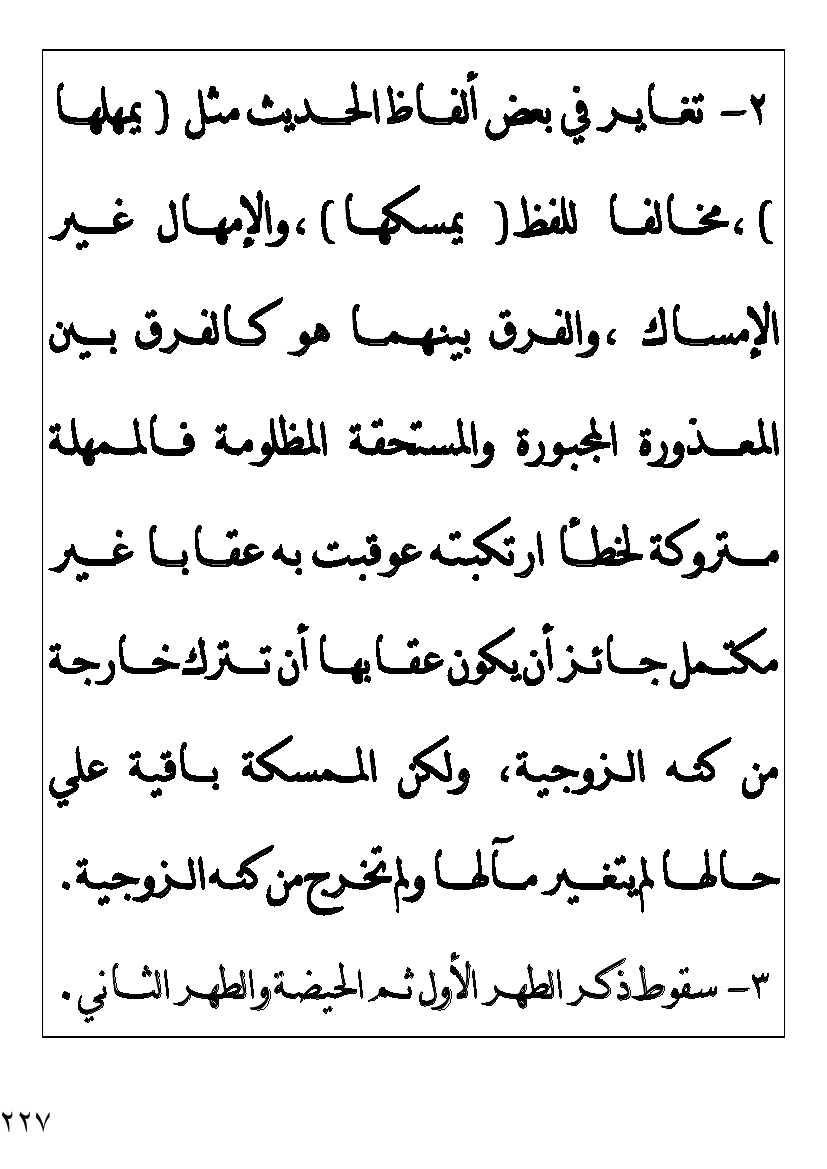 ٢- تغاير في بعض ألفاظ الحديث مثل ( يمهلها
) ،مخالفا للفظ ( يمسكها ) ،والإمهال غير
الإمساك ،والفرق بينهما هو كالفرق بين
المعذورة المجبورة والمستحقة المظلومة فالممهلة
متروكة لخطأ ارتكبته عوقبت به عقابا غير
مكتمل جائز أن يكون عقابها أن تترك خارجة
من كنه الزوجية، ولكن الممسكة باقية علي
حالها لم يتغير مآلها ولم تخرج من كنه الزوجية .
٣- سقوط ذكر الطهر الأول ثم الحيضة والطهر الثاني .
٢٢٧